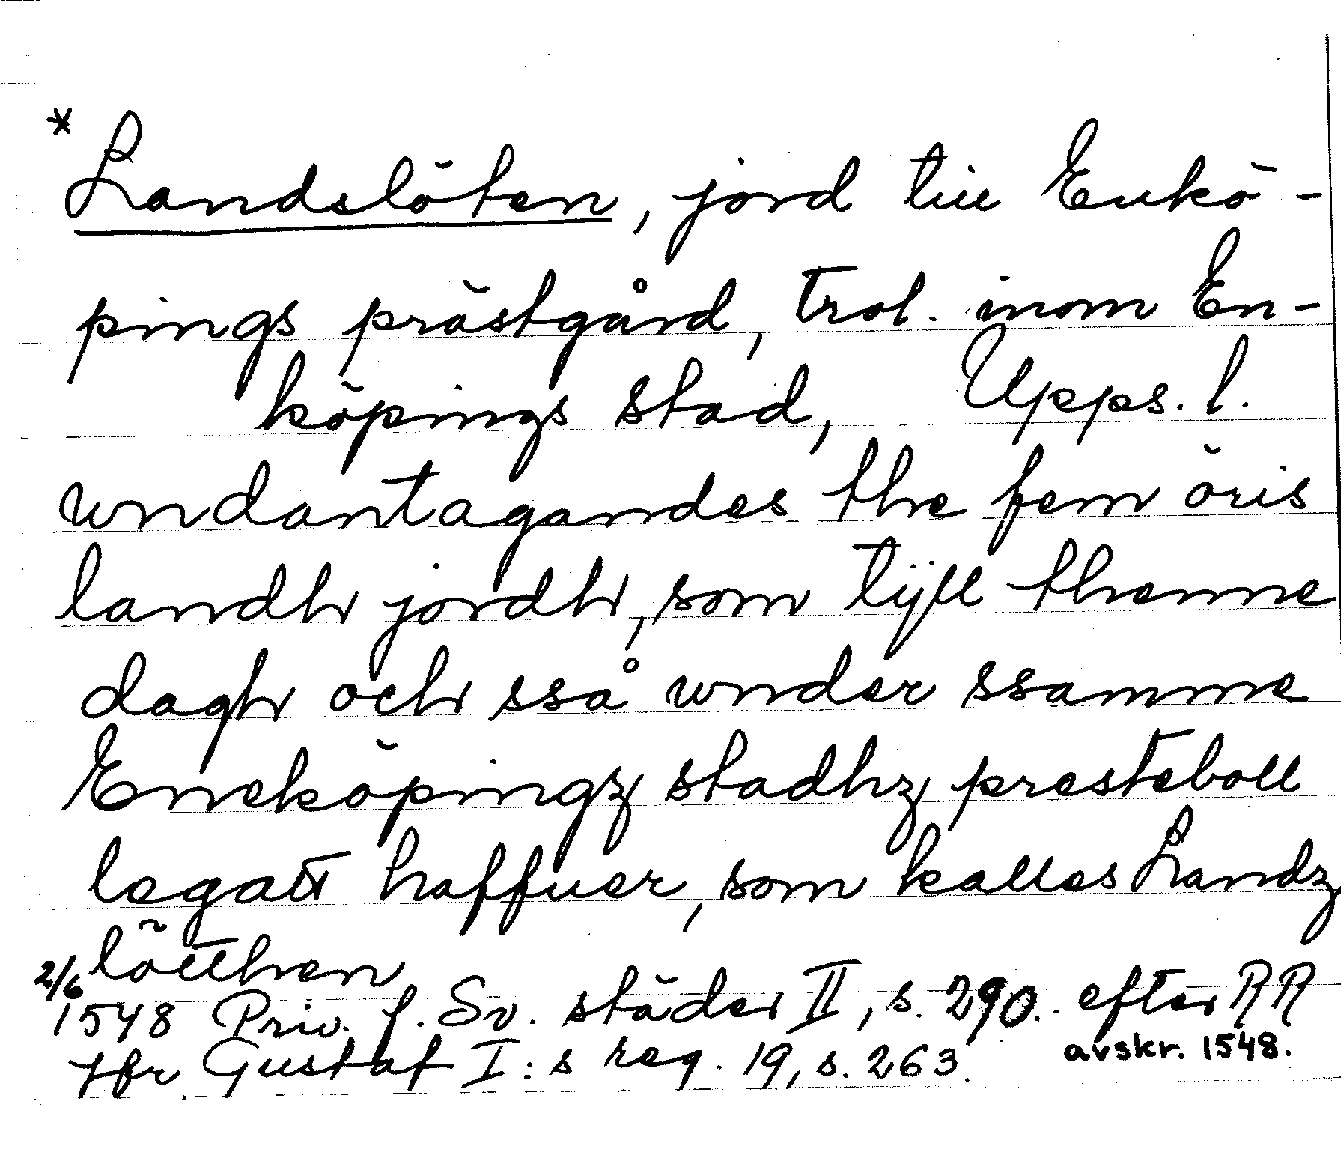 * Landslöten, jord till Enkö-
pings prästgård, trol. inom En-
köpings stad, Upps. l.
wndantagandes the fem öris
landh jordh, som tijll thenne
dagh och sså wnder ssamme
Eneköpingz stadhz presteboll
legatt haffuer, som kalles Landz
lötthen
2/6 1548 Priv. f. Sv. städer II, s. 290. efter RR
avskr. 1548.
Jfr Gustaf I:s reg. 19, s. 263.